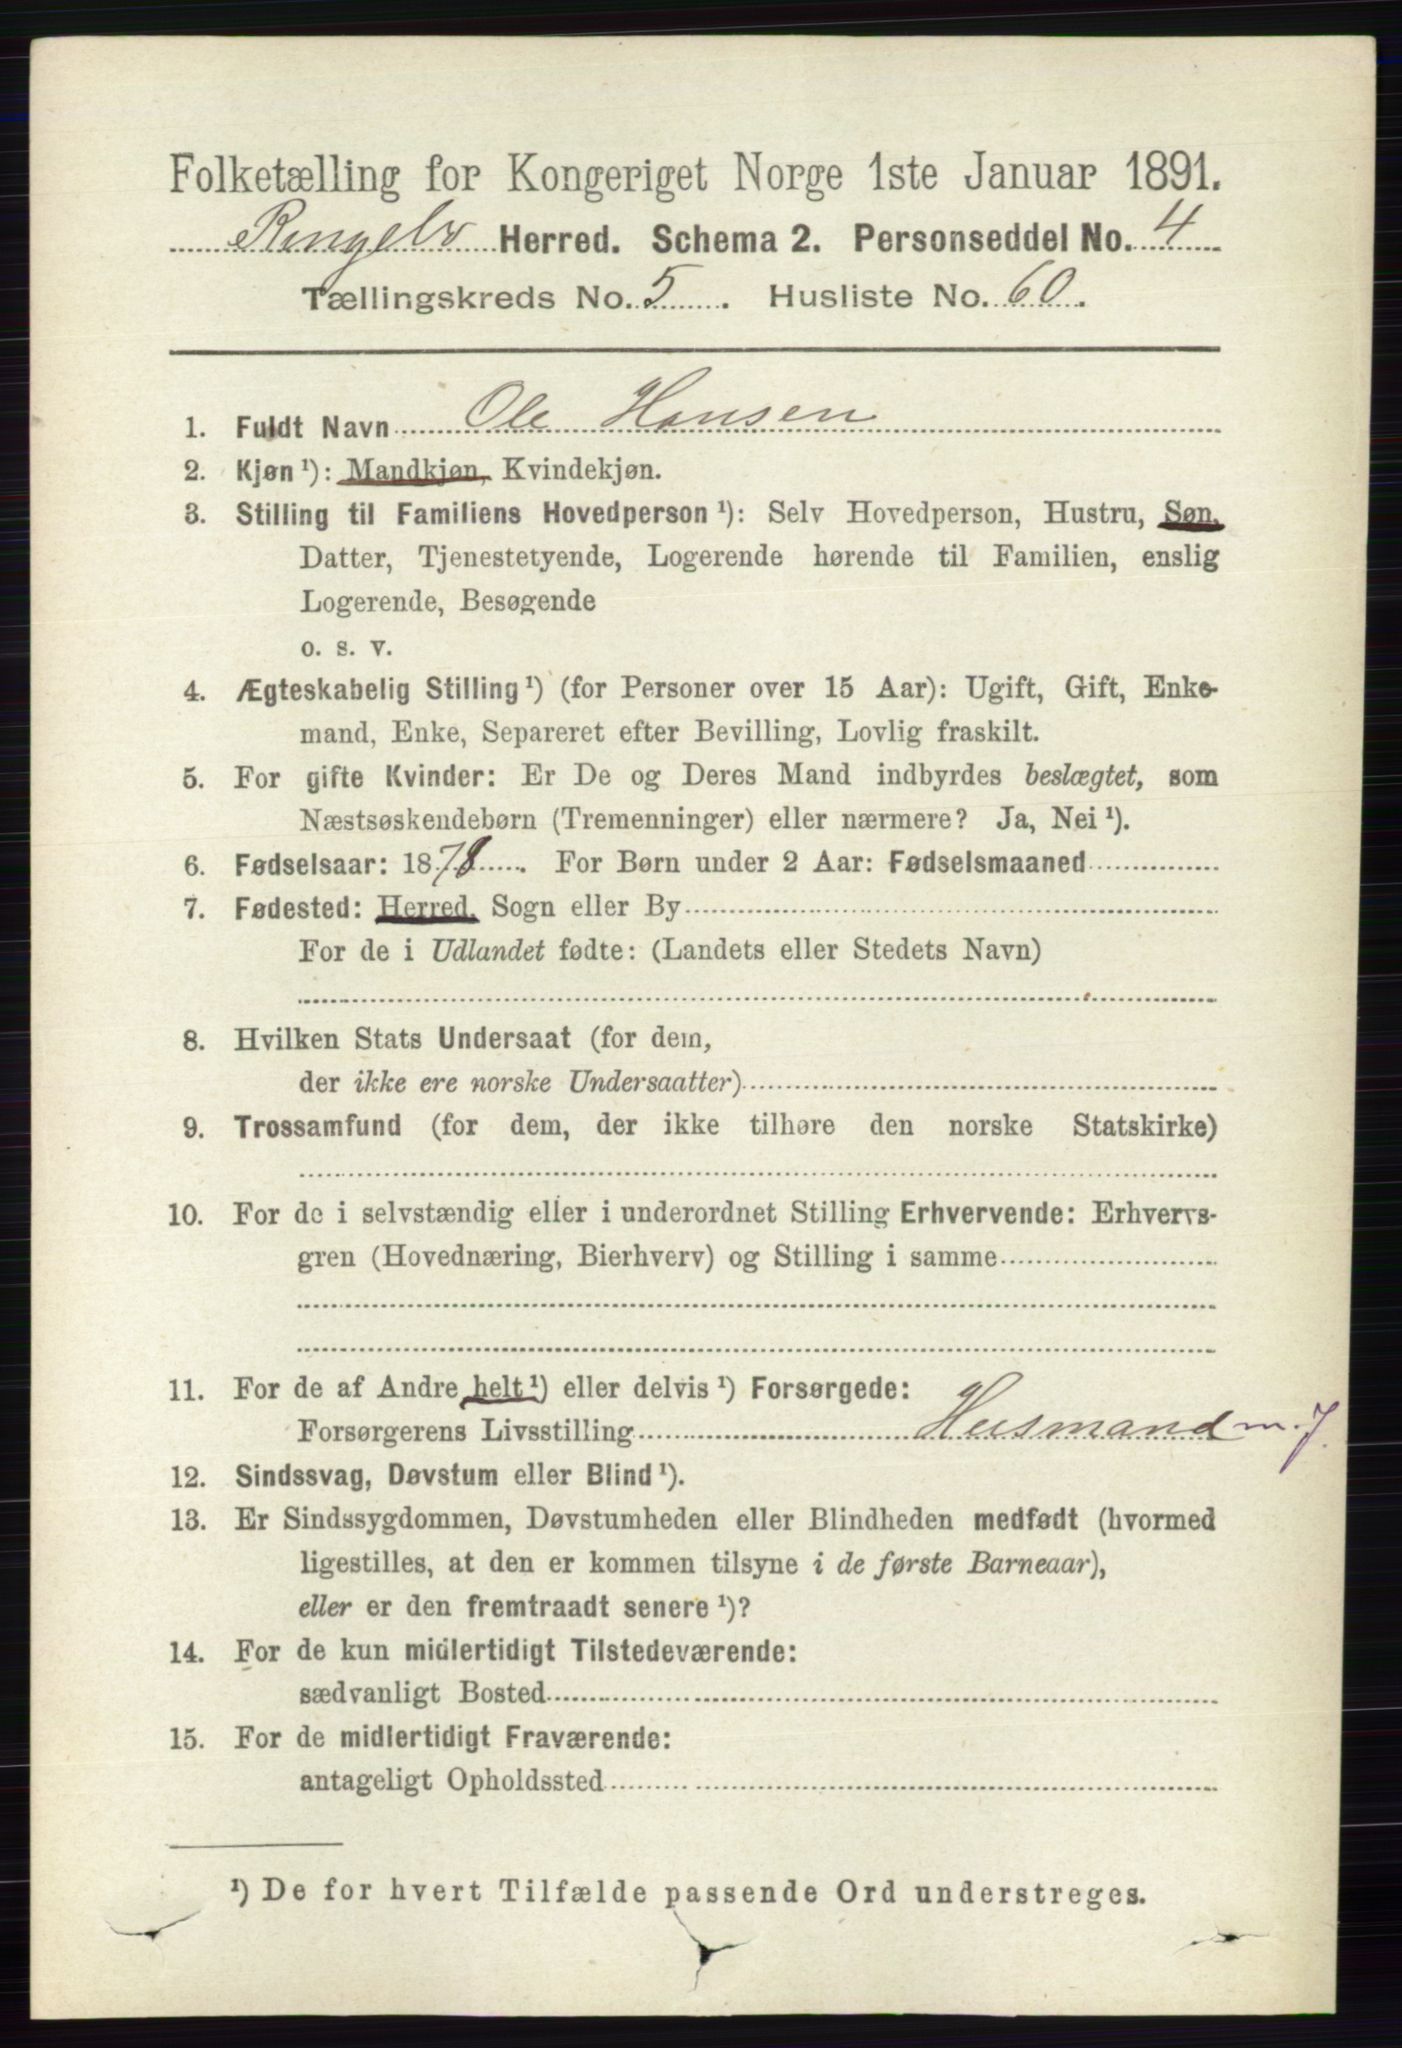 Folketælling for Kongeriget Norge 1ste Januar 1891.
Ringebo Herred. Schema 2. Personseddel No. 4
Tællingskreds No. 5. Husliste No. 60.
1. Fuldt Navn Ole Hansen
2. Kjøn ¹): Mandkjøn, Kvindekjøn.
3. Stilling til Familiens Hovedperson ¹): Selv Hovedperson, Hustru, Søn,
Datter, Tjenestetyende, Logerende hørende til Familien, enslig
Logerende, Besøgende
o. s. v.
4. Ægteskabelig Stilling ¹) (for Personer over 15 Aar): Ugift, Gift, Enke-
mand, Enke, Separeret efter Bevilling, Lovlig fraskilt.
5. For gifte Kvinder: Er De og Deres Mand indbyrdes beslægtet, som
Næstsøskendebørn (Tremenninger) eller nærmere? Ja, Nei ¹).
6. Fødselsaar: 1878. For Børn under 2 Aar: Fødselsmaaned
7. Fødested: Herred, Sogn eller By
For de i Udlandet fødte: (Landets eller Stedets Navn)
8. Hvilken Stats Undersaat (for dem,
der ikke ere norske Undersaatter)
9. Trossamfund (for dem, der ikke tilhøre den norske Statskirke)
10. For de i selvstændig eller i underordnet Stilling Erhvervende: Erhvervs-
gren (Hovednæring, Bierhverv) og Stilling i samme
11. For de af Andre helt ¹) eller delvis ¹) Forsørgede:
Forsørgerens Livsstilling Husmand m. J.
12. Sindssvag, Døvstum eller Blind ¹).
13. Er Sindssygdommen, Døvstumheden eller Blindheden medfødt (hvormed
ligestilles, at den er kommen tilsyne i de første Barneaar),
eller er den fremtraadt senere ¹)?
14. For de kun midlertidigt Tilstedeværende:
sædvanligt Bosted
15. For de midlertidigt Fraværende:
antageligt Opholdssted
¹) De for hvert Tilfælde passende Ord understreges.